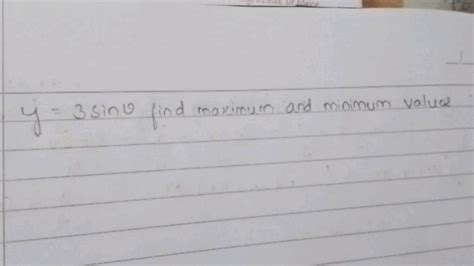 y = 3 sinθ find maximum and minimum values